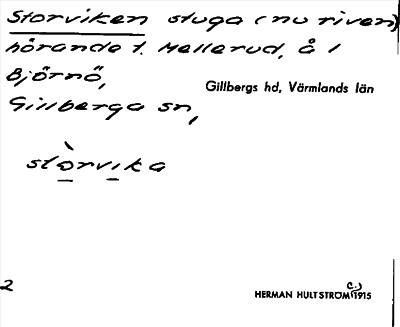 Storviken stuga (nu riven)
hörande t. Mellerud, å 1
Björnö,
Gillbergs hd, Värmlands län
Gillberga sn,
stòrvika
2
HERMAN HULTSTRÖM (c.) 1915